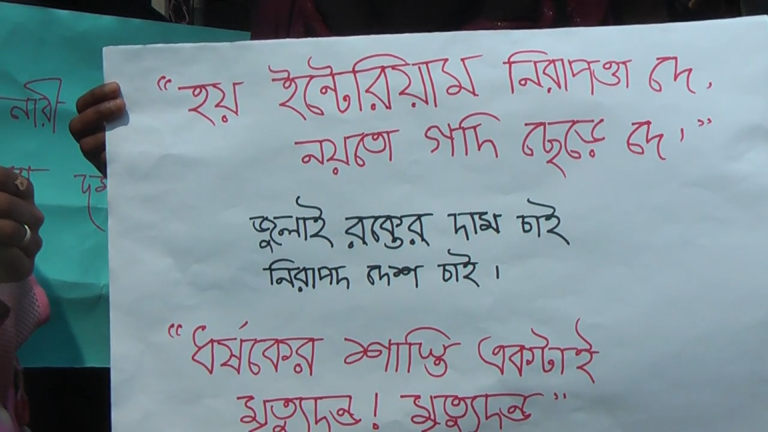 “হয় ইন্টেরিয়াম নিরাপত্তা দে,
নয়তো গদি ছেড়ে দে।”
জুলাই রক্তের দাম চাই
নিরাপদ দেশ চাই।
“ধর্ষকের শাস্তি একটাই
মৃত্যুদন্ড! মৃত্যুদন্ড”
নারী